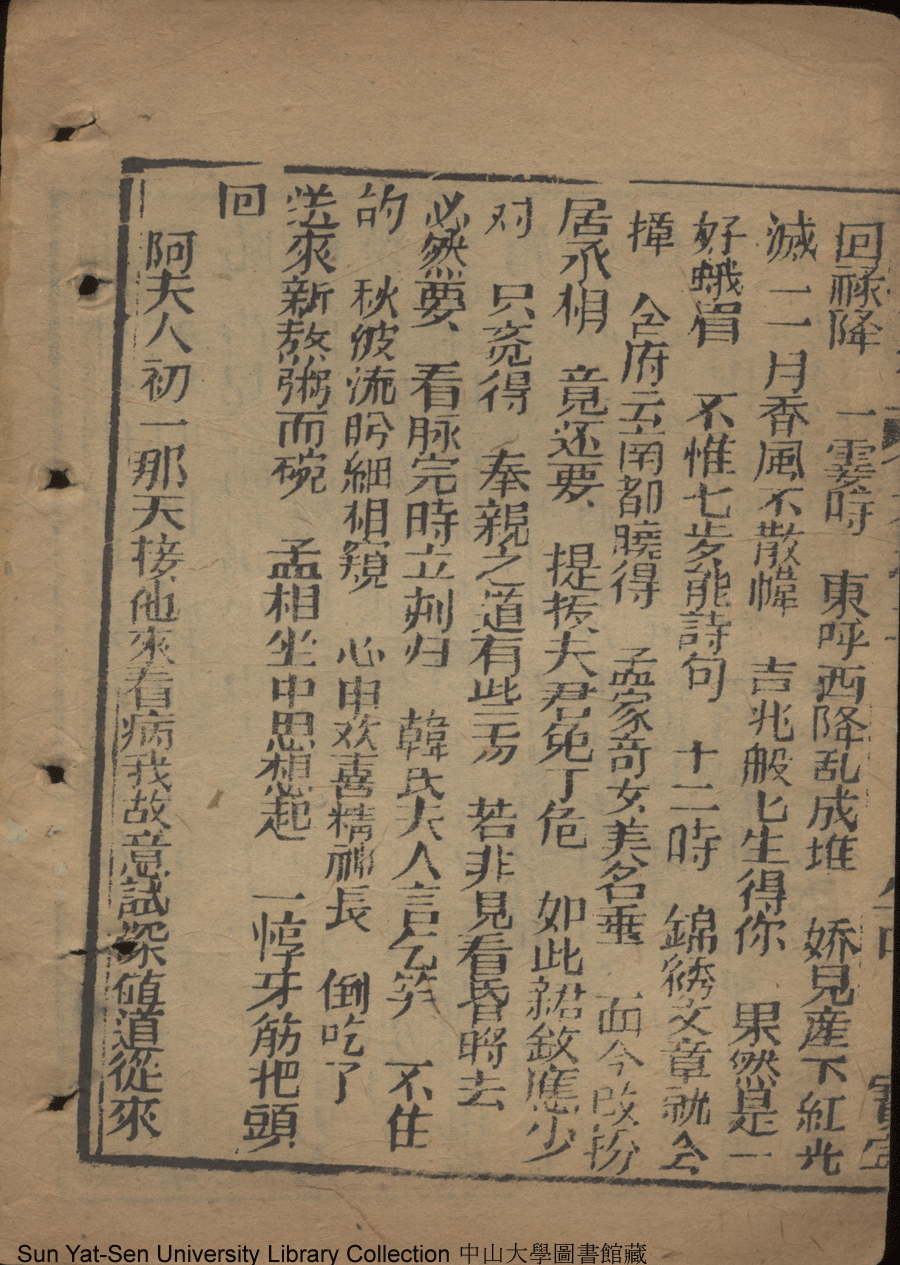 回祿降 一霎時 東呼西降乱成堆 娇見産下紅光
滅 一一月香風不散幃 吉兆般七生得你 果然是一
好蛾眉 不惟七步能詩句 十二時 錦綉文章就会
揮 合府云南都曉得 孟家奇女美名垂 而今改扮
居丞相 竟还要 提拔夫君免丁危 如此貂 應少
对 只充得 奉親之道有些亏 若非見看昏時去
必然要 看脉完時立刻归 韓氏夫人言乞笑 不住
的 秋彼流盻細相窺 心中欢喜精神長 倒吃了
送來新熬粥而碗 孟相坐中思想起 一惇牙筋把頭
回
阿夫人初一那天接他來看病我故意試探值道從來
Sun Yat-Sen University Library Collection 中山大學圖書館藏